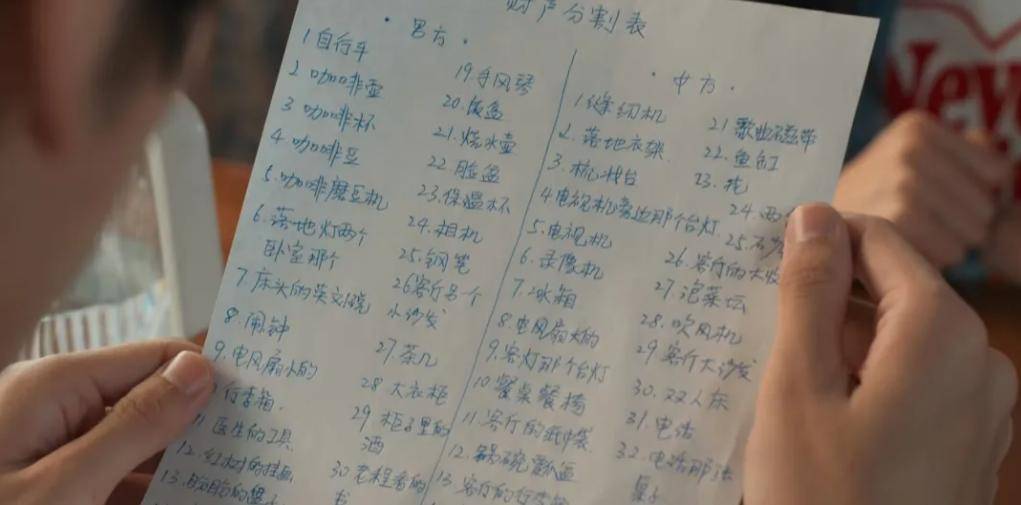 财产分割表
·男方·
1自行车
2咖啡壶
3咖啡杯
4咖啡豆
5.咖啡磨豆机
6.落地灯两个
卧室那个
7.床头的英文
8.闹钟
9.电风扇小的
行李箱.
11医生的工具
12.红树的挂画
13.
19.手风琴
20.饭盒
21.烧水壶
22.脸盆
23.保温杯
24.相机
25.钢笔
26客厅另一个
小沙发
27.茶几
28大衣柜
29柜子里的
酒
30老程看的
书
·中方·
1.缝纫机
2.落地衣架
3.梳妆台
4电视机旁边那个台灯
5.电视机
6.录像机
7.冰箱
8.电风扇大的
9.客灯那个台灯
10餐桌餐椅
11.客厅的
12.锅碗瓢盆
13客厅的
21歌曲磁带
22.鱼缸
23.花
24.两
25.
26.客厅的大
27.泡菜坛
28.吹风机
29客厅大沙发
30.双人床
31.电话
32.电话那张
桌子
New